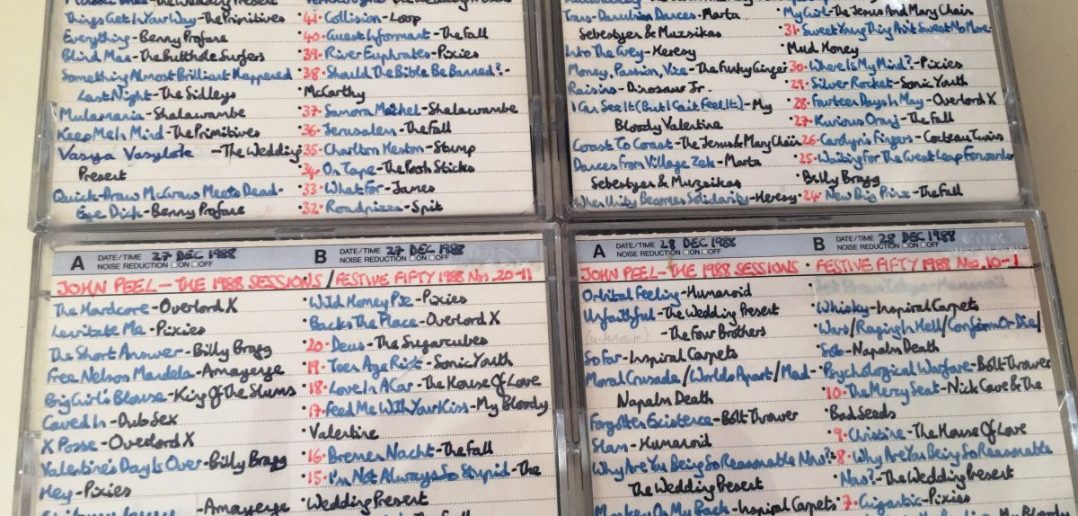 Things Get In Your Way-The Primitives
Everything-Benny Profane
Blind Man-The Butthole Surfers
Something Almost Brilliant Happened
Last Night-The Sidleys
Mulamania-Shalawambe
Keep Me In Mind-The Primitives
Vasya Vasylote -The Wedding
Present
Quick-Draw McGraw Meets Dead-
Eye Dick-Benny Profane
41-Collision-Loop
40-Guest Informant-The Fall
39-River Euphrates-Pixies
38-Should The Bible Be Banned?-
McCarthy
37-Samora Machel-Shalawambe
36-Jerusalem-The Fall
35-Charlton Heston-Stump
34-On Tape-The Pooh Sticks
33-What For-James
32-Roadpizza-Spit
Trans-Danubian Dances-Marta
Sebestyen & Muzsikas
Into The Grey-Heresy
Money, Passion, Vice-The Funky Ginger
Raisins-Dinosaur Jr.
I Can See It (But I Can't Feel It)-My
Bloody Valentine
Coast To Coast-The Jesus & Mary Chain
Dances From Village Zek-Marta
Sebestyen & Muzsikas
When Unity Becomes Solidarity-Heresy
My Girl-The Jesus And Mary Chain
31-Sweet Young Thing Ain't Sweet No More-
Mud Honey
30-Where Is My Mind?-Pixies
29-Silver Rocket-Sonic Youth
28-Fourteen Days In May-Overlord X
27-Kurious Oranj-The Fall
26-Carolyn's Fingers-Cocteau Twins
25-Waiting For The Great Leap Forwards
Billy Bragg
24-New Big Prinz-The Fall
A DATE/TIME 27 DEC 1988
NOISE REDUCTION ON OFF
B DATE/TIME 27 DEC 1988
NOISE REDUCTION ON OFF
JOHN PEEL-THE 1988 SESSIONS/FESTIVE FIFTY 1988 Nos. 20-11
The Hardcore-Overlord X
Levitate Me-Pixies
The Short Answer-Billy Bragg
Free Nelson Mandela-Amayenge
Big Girl's Blouse-King Of The Slums
Caved In-Dub Sex
X Posse-Overlord X
Valentine's Day Is Over-Billy Bragg
Hey-Pixies
-Amayenge
Wild Honey Pie-Pixies
Backs The Place-Overlord X
20-Deus-The Sugarcubes
19-Teen Age Riot-Sonic Youth
18-Love In A Car-The House Of Love
17-Feed Me With Your Kiss-My Bloody
Valentine
16-Bremen Nacht-The Fall
15-I'm Not Always So Stupid-The
Wedding Present
A DATE/TIME 28 DEC 1988
NOISE REDUCTION ON OFF
B DATE/TIME 28 DEC 1988
NOISE REDUCTION ON OFF
JOHN PEEL-THE 1988 SESSIONS · FESTIVE FIFTY 1988 Nos. 10-1
Orbital Feeling-Humanoid
Unfaithful-The Wedding Present
-The Four Brothers
So Far-Inspiral Carpets
Moral Crusade/Worlds Apart/Mad-
Napalm Death
Forgotten Existence-Bolt Thrower
Slam-Humanoid
Why Are You Being So Reasonable Now?-
The Wedding Present
Monkey On My Back-Inspiral Carpets
Whisky-Inspiral Carpets
Wars/Raging In Hell/Confirm Or Die/
Solo-Napalm Death
Psychological Warfare-Bolt Thrower
10-The Mercy Seat-Nick Cave & The
Bad Seeds
9-Christine-The House Of Love
8-Why Are You Being So Reasonable
Now?-The Wedding Present
7-Gigantic-Pixies